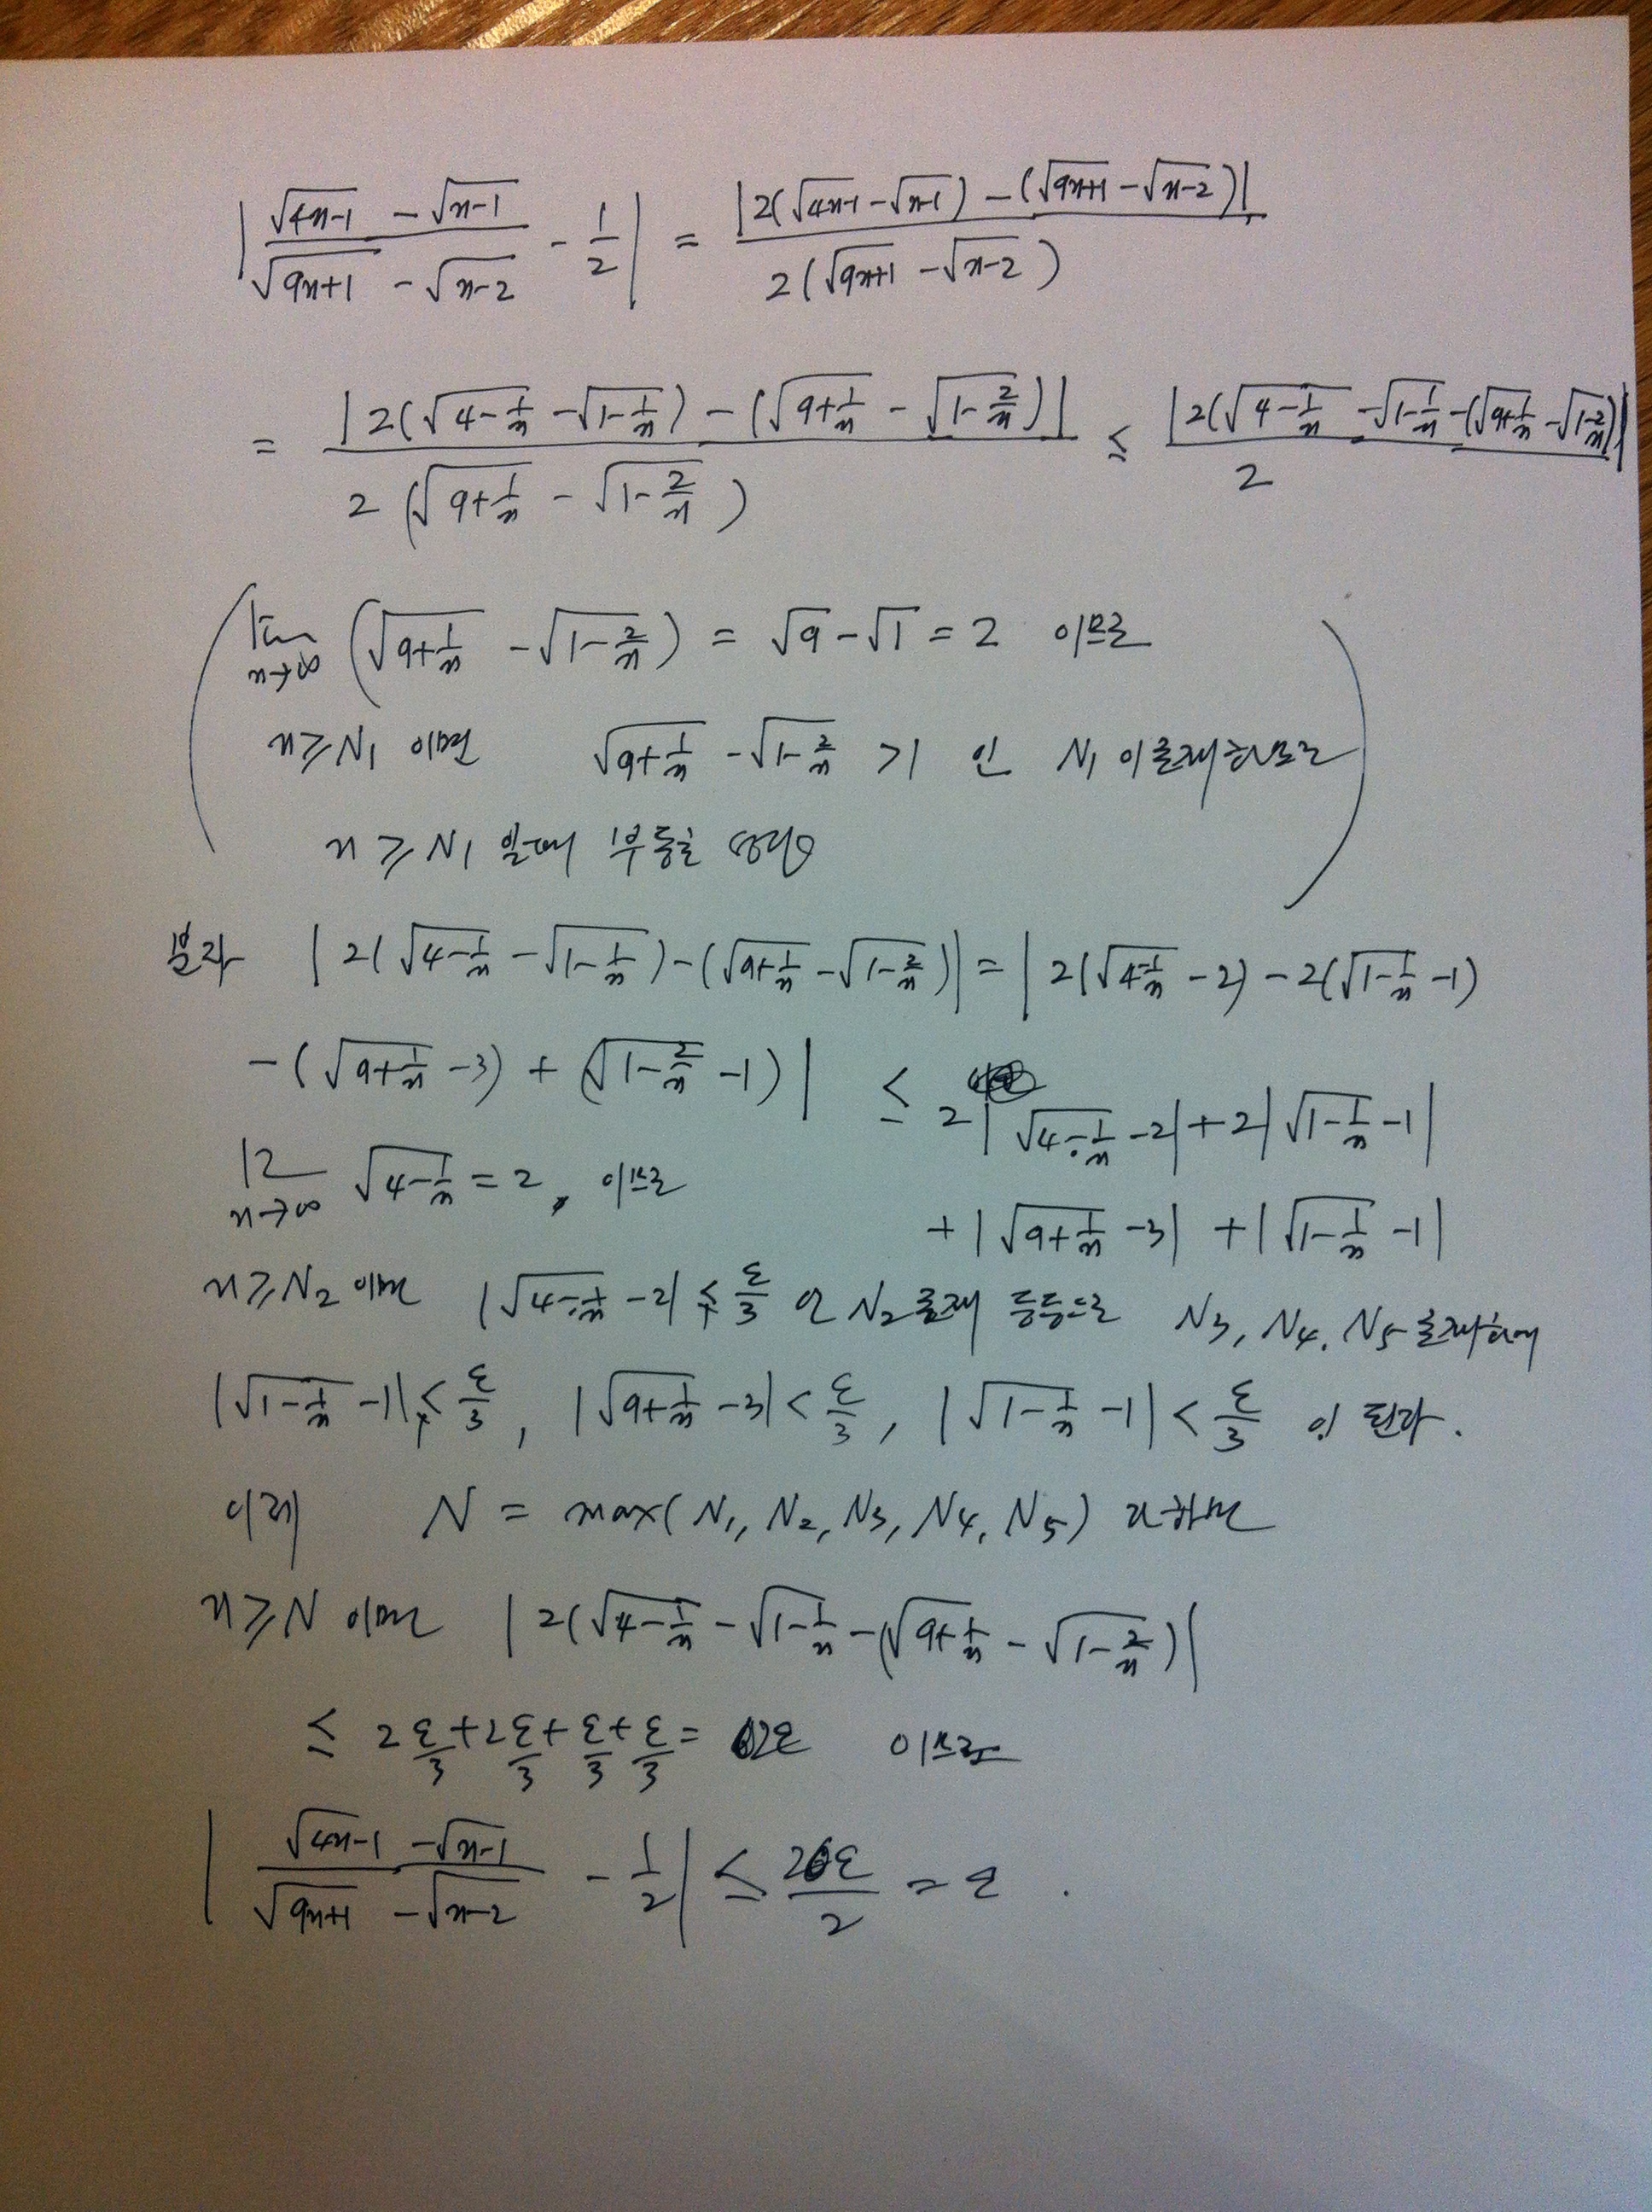 |(√(4n-1) - √(n-1))/(√(9n+1) - √(n-2)) - 1/2| = |2(√(4n-1) - √(n-1)) - (√(9n+1) - √(n-2))| / 2(√(9n+1) - √(n-2))
= |2(√(4-1/n) - √(1-1/n)) - (√(9+1/n) - √(1-2/n))| / 2(√(9+1/n) - √(1-2/n)) ≤ |2(√(4-1/n) - √(1-1/n) - (√(9+1/n) - √(1-2/n))| / 2
( lim n→∞ (√(9+1/n) - √(1-2/n)) = √9 - √1 = 2 이므로
n ≥ N₁ 이면 √(9+1/n) - √(1-2/n) > 1 인 N₁ 이 존재하므로
n ≥ N₁ 일때 부등호 성립 )
분자 |2(√(4-1/n) - √(1-1/n)) - (√(9+1/n) - √(1-2/n))| = |2(√(4-1/n) - 2) - 2(√(1-1/n) - 1)
- (√(9+1/n) - 3) + (√(1-2/n) - 1)| ≤ 2|√(4-1/n) - 2| + 2|√(1-1/n) - 1|
+ |√(9+1/n) - 3| + |√(1-1/n) - 1|
lim n→∞ √(4-1/n) = 2, 이므로
n ≥ N₂ 이면 |√(4-1/n) - 2| < ε/3 인 N₂ 존재 등등으로 N₃, N₄, N₅ 존재하여
|√(1-1/n) - 1| < ε/3, |√(9+1/n) - 3| < ε/3, |√(1-1/n) - 1| < ε/3 이 된다.
이제 N = max(N₁, N₂, N₃, N₄, N₅) 라하면
n ≥ N 이면 |2(√(4-1/n) - √(1-1/n) - (√(9+1/n) - √(1-2/n))|
≤ 2ε/3 + 2ε/3 + ε/3 + ε/3 = 2ε 이므로
|(√(4n-1) - √(n-1))/(√(9n+1) - √(n-2)) - 1/2| ≤ 2ε/2 = ε .